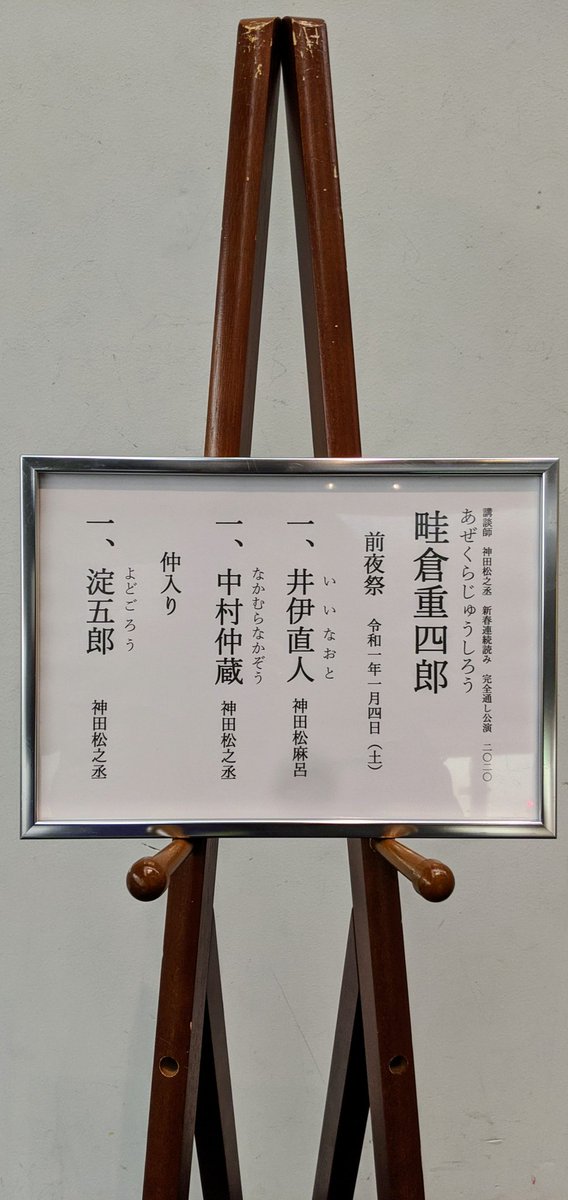 講談師　神田松之丞　新春連続読み　完全通し公演　二〇二〇
あぜくらじゅうしろう
畦倉重四郎
前夜祭　令和一年一月四日（土）
いいなおと
一、井伊直人　神田松麻呂
なかむらなかぞう
一、中村仲蔵　神田松之丞
仲入り
よどごろう
一、淀五郎　神田松之丞